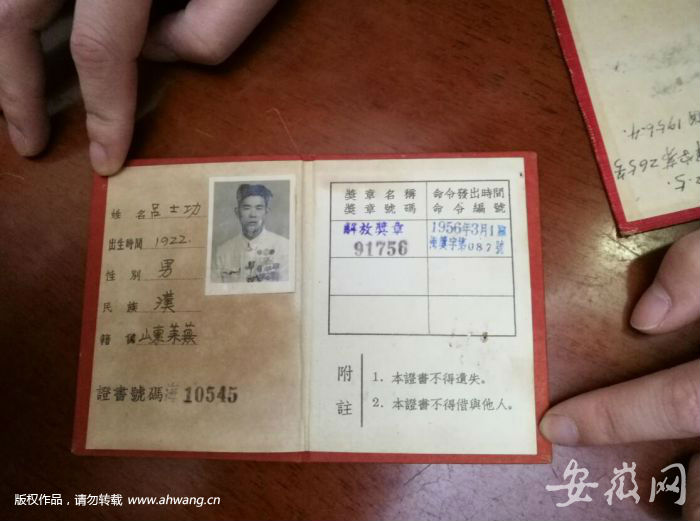 姓名 呂士功
出生時間 1922.
性別 男
民族 漢
籍貫 山東萊蕪
證書號碼 海 10545
獎章名稱 命令發出時間
獎章號碼 命令編號
解放獎章 1956年3月1日
91756 海獎字第087號
附註
1. 本證書不得遺失。
2. 本證書不得借與他人。
第265号
1956.4.
版权作品，请勿转载 www.ahwang.cn
安徽网